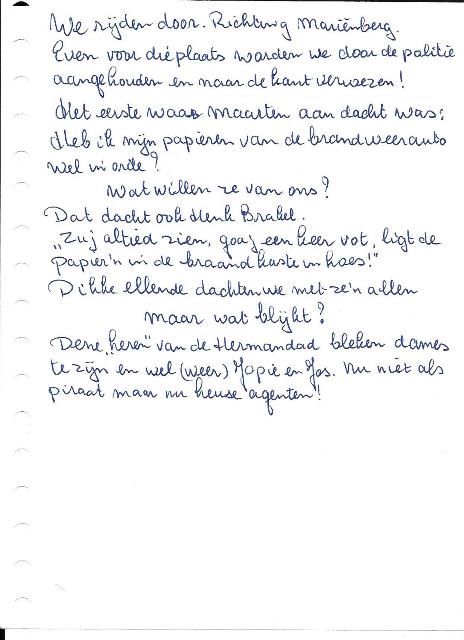 We rijden door. Richting Mariënberg.
Even voor die plaats worden we door de politie
aangehouden en naar de kant verwezen!
Het eerste waar Maarten aan dacht was:
Heb ik mijn papieren van de brandweerauto
wel in orde?
Wat willen ze van ons?
Dat dacht ook Henk Brakel.
„Zuj altied zien, goaj een keer vot, ligt de
papier'n in de braandkaste in hoes!"
Dikke ellende dachten we met z'n allen
maar wat blijkt?
Deze „heren" van de Hermandad bleken dames
te zijn en wel (weer) Jopie en Jos. Nu niet als
piraat maar nu heuse agenten!